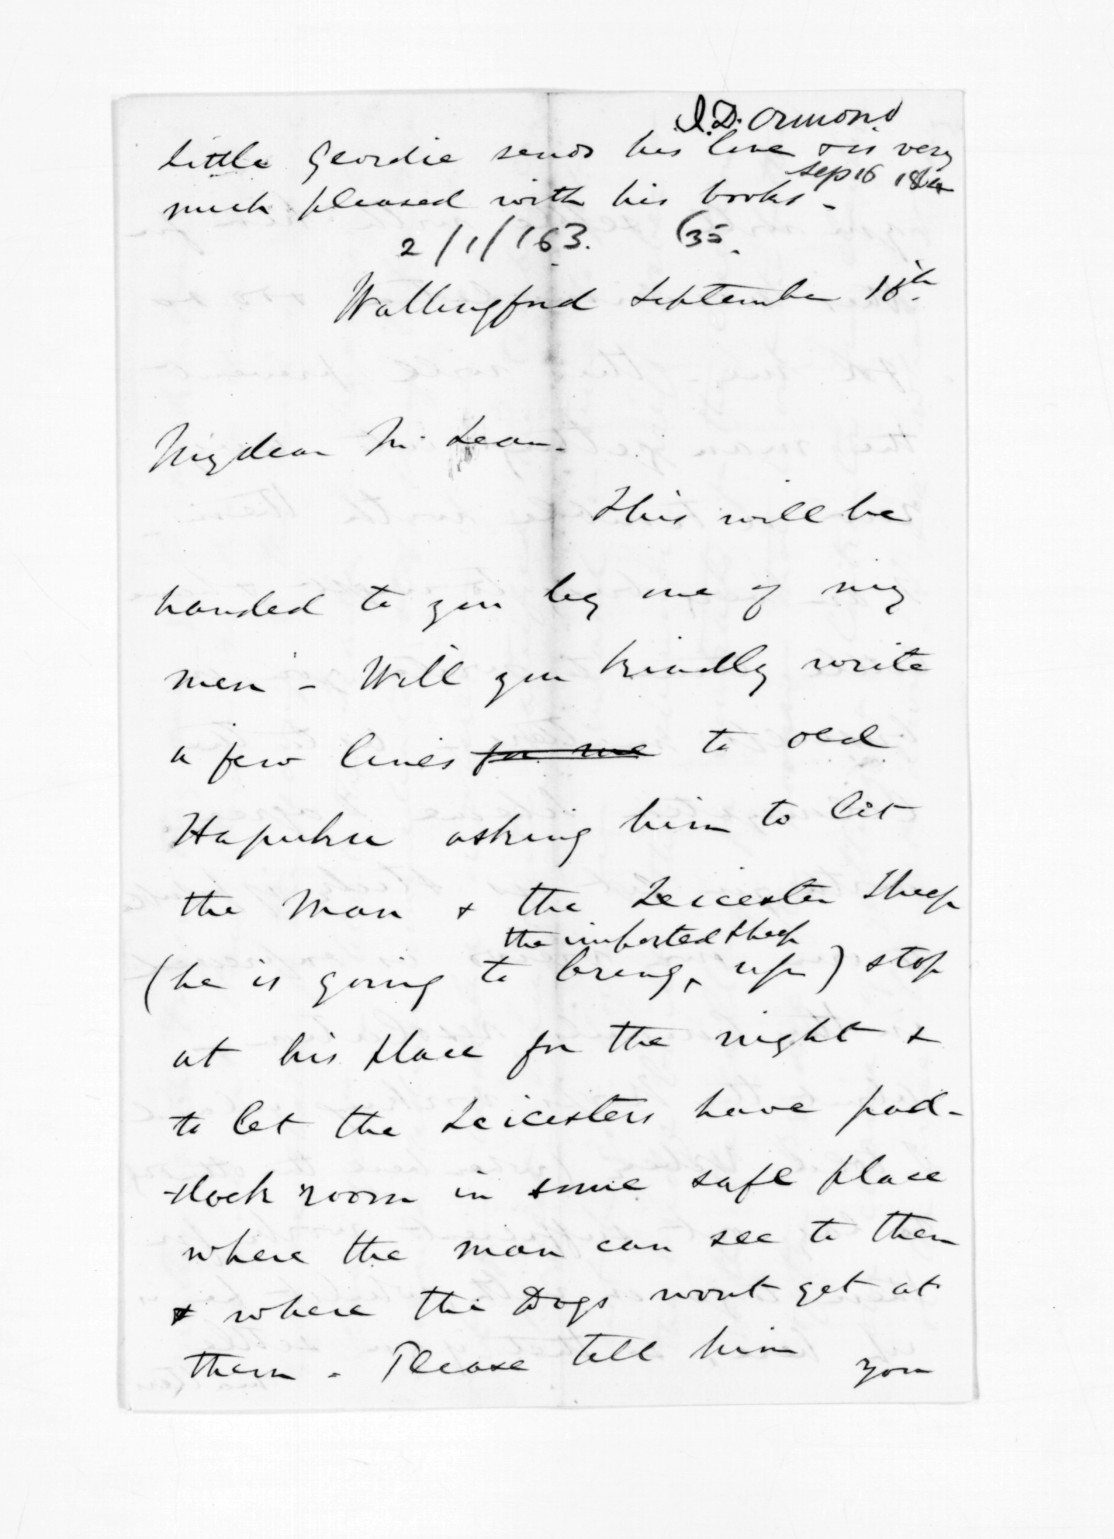 J.D. Ormond
Little Geordie sends his love & is very
Sep 16
much pleased with his books -
2/1/163. (35.
Wallingford September 16th
My dear McLean -
This will be
handed to you by one of my
men - Will you kindly write
a few lines for me to old
Hapuku asking him to let
the Man & the Leicester Sheep
the imported sheep
(he is going to bring, up) stop
at his place for the night &
to let the Leicesters have pad-
-dock room in some safe place
where the man can see to them
& where the Dogs wont get at
them - Please tell him you